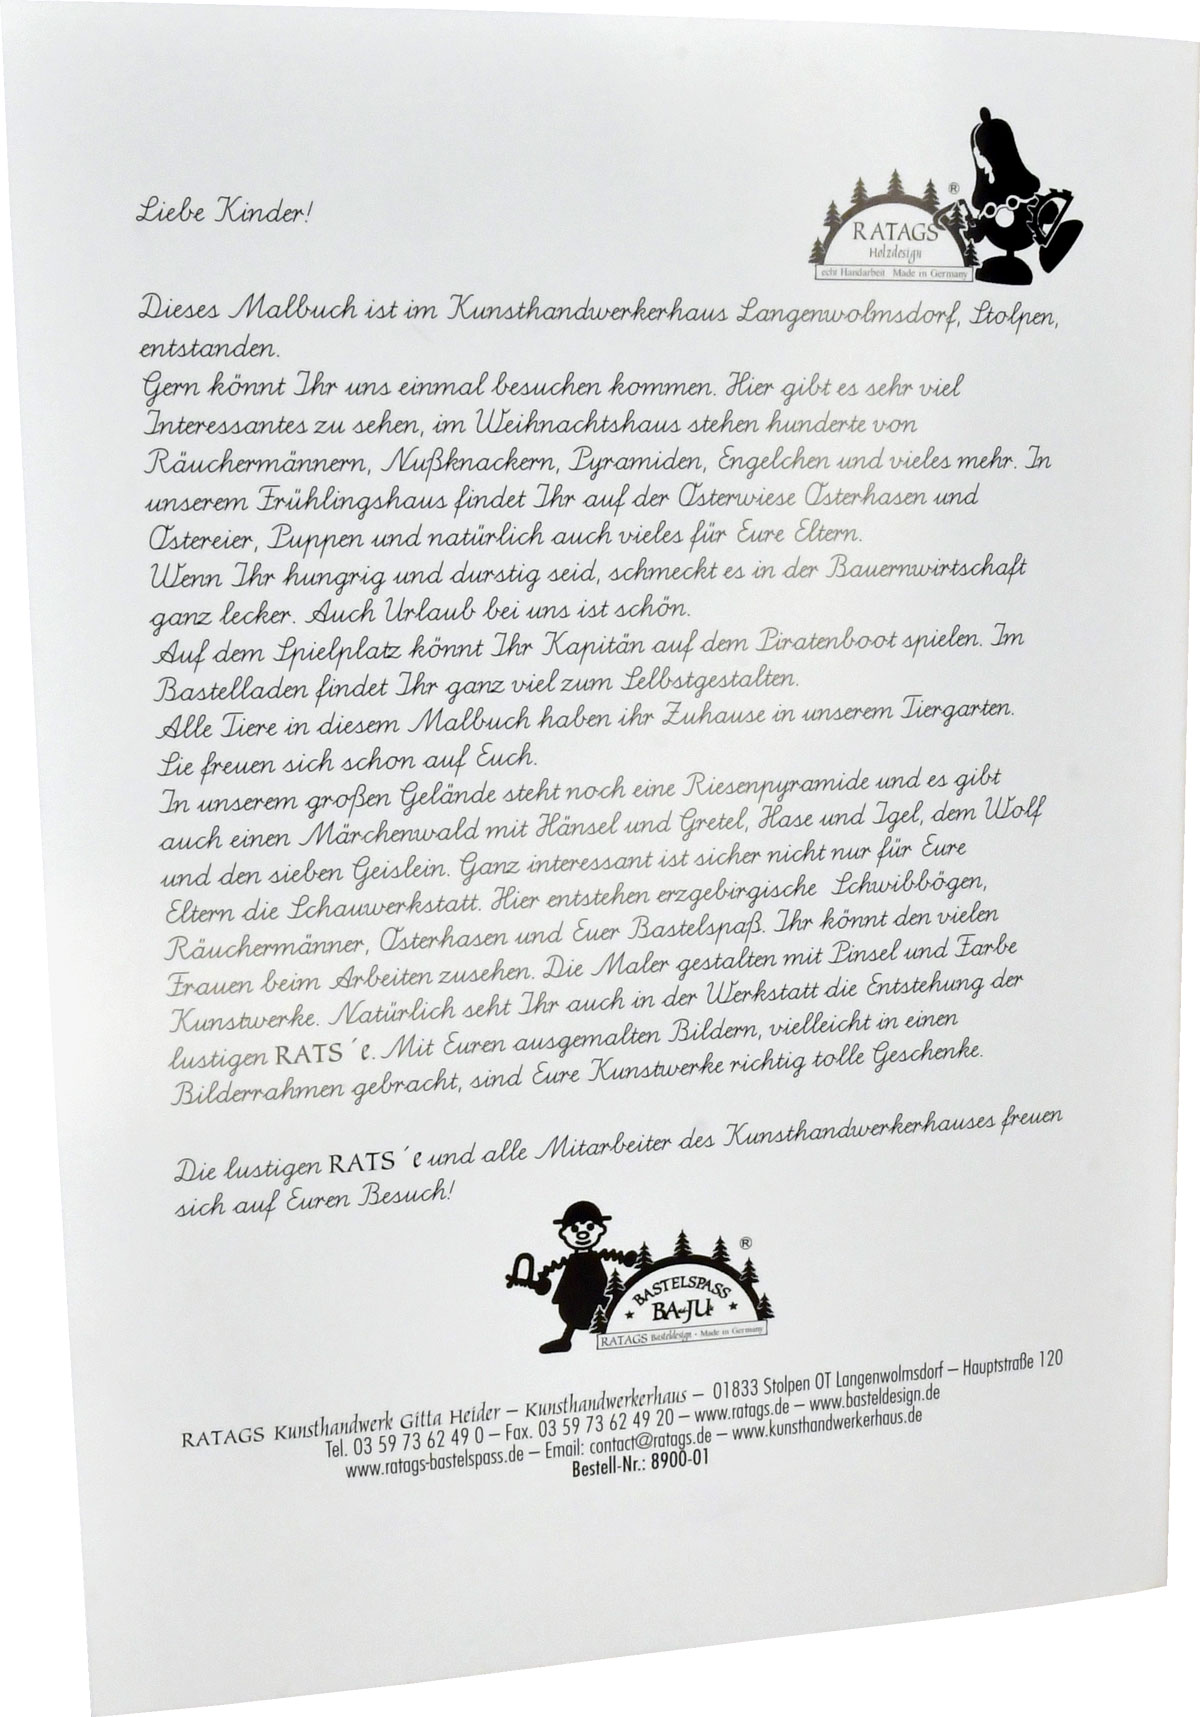 Liebe Kinder!
RATAGS ®
Holzdesign
echt Handarbeit Made in Germany
Dieses Malbuch ist im Kunsthandwerkerhaus Langenwolmsdorf, Stolpen,
entstanden.
Gern könnt Ihr uns einmal besuchen kommen. Hier gibt es sehr viel
Interessantes zu sehen, im Weihnachtshaus stehen hunderte von
Räuchermännern, Nußknackern, Pyramiden, Engelchen und vieles mehr. In
unserem Frühlingshaus findet Ihr auf der Osterwiese Osterhasen und
Ostereier, Puppen und natürlich auch vieles für Eure Eltern.
Wenn Ihr hungrig und durstig seid, schmeckt es in der Bauernwirtschaft
ganz lecker. Auch Urlaub bei uns ist schön.
Auf dem Spielplatz könnt Ihr Kapitän auf dem Piratenboot spielen. Im
Bastelladen findet Ihr ganz viel zum Selbstgestalten.
Alle Tiere in diesem Malbuch haben ihr Zuhause in unserem Tiergarten.
Sie freuen sich schon auf Euch.
In unserem großen Gelände steht noch eine Riesenpyramide und es gibt
auch einen Märchenwald mit Hänsel und Gretel, Hase und Igel, dem Wolf
und den sieben Geislein. Ganz interessant ist sicher nicht nur für Eure
Eltern die Schauwerkstatt. Hier entstehen erzgebirgische Schwibbögen,
Räuchermänner, Osterhasen und Euer Bastelspaß. Ihr könnt den vielen
Frauen beim Arbeiten zusehen. Die Maler gestalten mit Pinsel und Farbe
Kunstwerke. Natürlich seht Ihr auch in der Werkstatt die Entstehung der
lustigen RATS´e. Mit Euren ausgemalten Bildern, vielleicht in einen
Bilderrahmen gebracht, sind Eure Kunstwerke richtig tolle Geschenke.
Die lustigen RATS´e und alle Mitarbeiter des Kunsthandwerkerhauses freuen
sich auf Euren Besuch!
®
BASTELSPASS
RATAGS Basteldesign - Made in Germany
RATAGS Kunsthandwerk Gitta Heider – Kunsthandwerkerhaus – 01833 Stolpen OT Langenwolmsdorf – Hauptstraße 120
Tel. 03 59 73 62 49 0 – Fax. 03 59 73 62 49 20 – www.ratags.de – www.basteldesign.de
www.ratags-bastelspass.de – Email: contact@ratags.de – www.kunsthandwerkerhaus.de
Bestell-Nr.: 8900-01